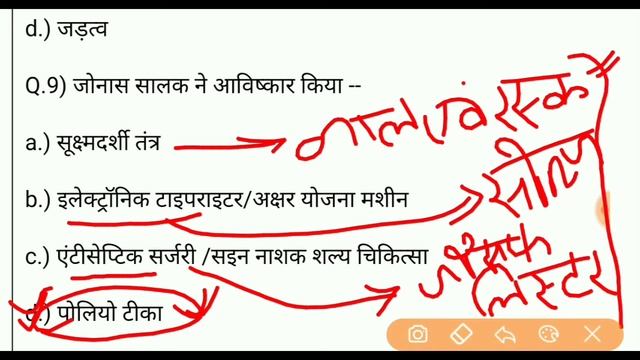 d.) जड़त्व
Q.9) जोनास सालक ने आविष्कार किया --
a.) सूक्ष्मदर्शी तंत्र
b.) इलेक्ट्रॉनिक टाइपराइटर/अक्षर योजना मशीन
c.) एंटीसेप्टिक सर्जरी /सइन नाशक शल्य चिकित्सा
लिस्टर
d.) पोलियो टीका